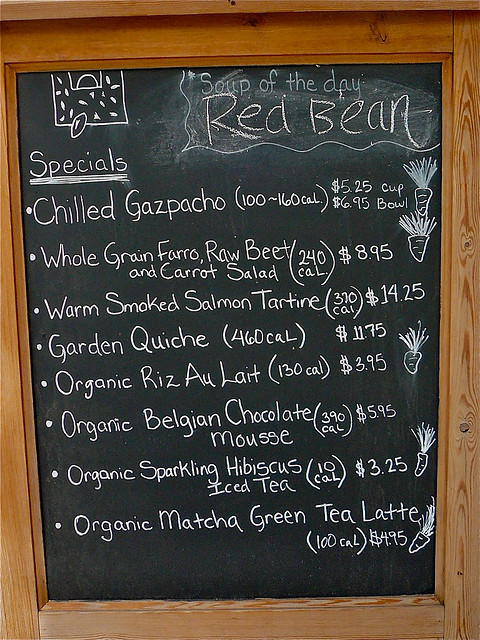 Soup of the day
Red Bean
Specials
• Chilled Gazpacho (100~160cal) $5.25 cup
$6.95 Bowl
• Whole Grain Farro, Raw Beet
and Carrot Salad (240 caL) $8.95
• Warm Smoked Salmon Tartine (370 cal) $14.25
• Garden Quiche (460 caL) $11.75
• Organic Riz Au Lait (130 cal) $3.95
• Organic Belgian Chocolate
mousse (390 caL) $5.95
• Organic Sparkling Hibiscus
Iced Tea (10 caL) $3.25
• Organic Matcha Green Tea Latte
(100 caL) $4.95